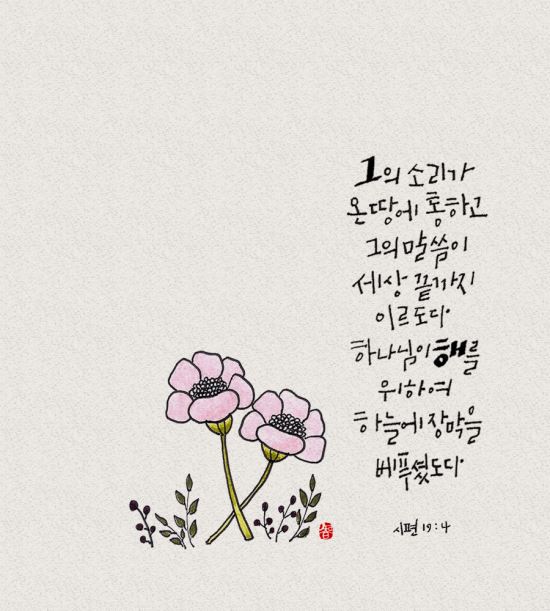 그의 소리가
온 땅에 통하고
그의 말씀이
세상 끝까지
이르도다
하나님이 해를
위하여
하늘에 장막을
베푸셨도다
시편 19:4